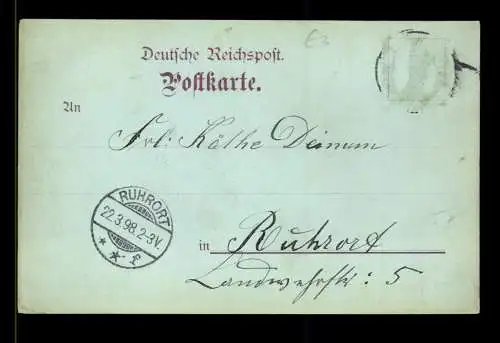 Deutsche Reichspost.
Postkarte.
An
Frl: Käthe Deinum
RUHRORT
22.3.98.2-3V.
* * 1f
in Ruhrort
Landwehrstr: 5